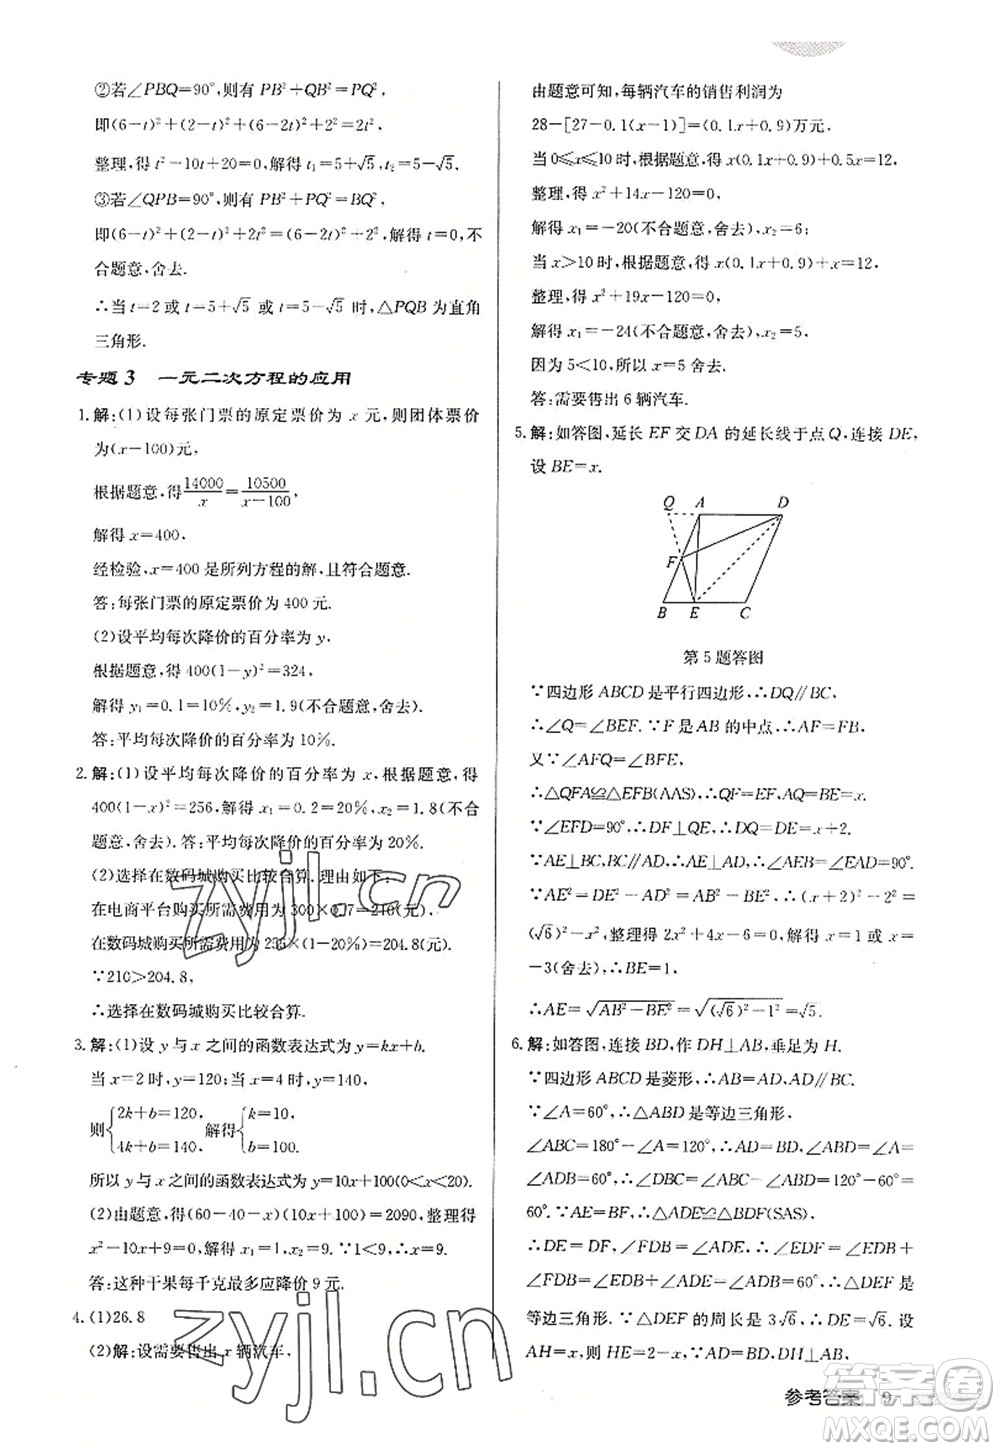 ②若∠PBQ=90°,则有 PB²+BQ²=PQ²,
即(6-t)²+(2t)²... 
整理,得 t²-10t+20=0,解得 t₁=5+√5,t₂=5-√5.
③若∠QPB=90°,则有 PB²+PQ²=BQ²,
即(6-t)²+(6-t)²+2t²=(6-t)²+2²,解得 t=0,不
合题意,舍去.
∴当 t=2 或 t=5+√5 或 t=5-√5 时,△PQB 为直角
三角形.
专题 3 一元二次方程的应用
1.解:(1)设每张门票的原定票价为 x 元,则团体票价
为(x-100)元,
根据题意,得14000/x=10500/(x-100),
解得 x=400.
经检验,x=400 是所列方程的解,且符合题意.
答:每张门票的原定票价为 400 元.
(2)设平均每次降价的百分率为 y,
根据题意,得 400(1-y)²=324,
解得 y₁=0.1=10%,y₂=1.9(不合题意,舍去).
答:平均每次降价的百分率为 10%.
2.解:(1)设平均每次降价的百分率为 x,根据题意,得
400(1-x)²=256,解得 x₁=0.2=20%,x₂=1.8(不合
题意,舍去).答:平均每次降价的百分率为 20%.
(2)选择在数码城购买比较合算.理由如下:
在电商平台购买所需费用为 300×0.7=210(元),
在数码城购买所需费用为 256×(1-20%)=204.8(元).
∵210>204.8,
∴选择在数码城购买比较合算.
3.解:(1)设 y 与 x 之间的函数表达式为 y=kx+b.
当 x=2 时,y=120;当 x=4 时,y=140,
则{2k+b=120, 4k+b=140, 解得{k=10, b=100.
所以 y 与 x 之间的函数表达式为 y=10x+100(0<x<20).
(2)由题意,得(60-40-x)(10x+100)=2090,整理,得
x²-10x+9=0.解得 x₁=1,x₂=9.∵1<9,∴x=9.
答:这种干果每千克最多应降价 9 元.
4.(1)26.8
(2)解:设需要售出 x 辆汽车,
由题意可知,每辆汽车的销售利润为
28-[27-0.1(x-1)]=(0.1x+0.9)万元,
当 0≤x≤10 时,根据题意,得 x(0.1x+0.9)+0.5x=12,
整理,得 x²+14x-120=0,
解得 x₁=-20(不合题意,舍去),x₂=6;
当 x>10 时,根据题意,得 x(0.1x+0.9)+x=12,
整理,得 x²+19x-120=0,
解得 x₁=-24(不合题意,舍去),x₂=5,
因为 5<10,所以 x₂=5 舍去.
答:需要售出 6 辆汽车.
5.解:如答图,延长 EF 交 DA 的延长线于点 Q,连接 DE,
设 BE=x.
Q A D
F
B E C
第 5 题答图
∵四边形 ABCD 是平行四边形,∴DQ∥BC,
∴∠Q=∠BEF.∵F 是 AB 的中点,∴AF=FB,
又∵∠AFQ=∠BFE,
∴△QFA≌△EFB(AAS),∴QF=EF,AQ=BE=x.
∵∠EFD=90°,∴DF⊥QE,∴DQ=DE=x+2.
∵AE⊥BC,BC∥AD,∴AE⊥AD,∴∠AEB=∠EAD=90°.
∵AE²=DE²-AD²=AB²-BE²,∴(x+2)²-2²=
(√6)²-x²,整理得 2x²+4x-6=0,解得 x=1 或 x=
-3(舍去),∴BE=1.
∴AE=√(AB²-BE²)=√((√6)²-1²)=√5.
6.解:如答图,连接 BD,作 DH⊥AB,垂足为 H.
∵四边形 ABCD 是菱形,∴AD=AB,AD∥BC.
∵∠A=60°,∴△ABD 是等边三角形,
∠ABC=180°-∠A=120°,∴AD=BD,∠ABD=∠A=
∠ADB=60°,∴∠DBC=∠ABC-∠ABD=
60°.∵AE=BF,∴△ADE≌△BDF(SAS),∴
DE=DF,∠FDB=∠ADE,∴∠EDF=∠EDB+
∠FDB=∠EDB+∠ADE=∠ADB=60°,∴△DEF 是
等边三角形.∵△DEF 的周长是 3√6,∴DE=√6.设
AH=x,则 HE=2-x,∵AD=BD,DH⊥AB,
参考答案 9
zyjl.cn
zyjl.cn
答案圈
MXQE.COM